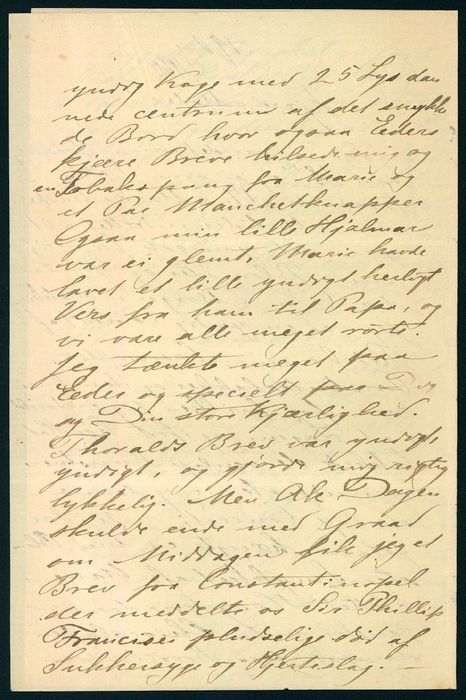 yndig Kage med 25 Lys dan
nede centrum af det smykke
de Bord hvor ogsaa Eders
kjære Breve hilsede mig og
en Tobakspung fra Marie og
et Par Manchetknapper
Ogsaa min lille Hjalmar
var ei glemt, Marie havde
lavet et lille yndigt herligt
Vers fra ham til Papa, og
vi vare alle meget rørte.
Jeg tænkte meget paa
Eder og specielt paa Dig
og Din store Kjærlighed.
Thoralds Brev var yndigt,
yndigt, og gjorde mig rigtig
lykkelig. Men Ak Dagen
skulde ende med Graad
om Middagen fik jeg et
Brev fra Constantinopel
der meddelte os Sir Phillip
Francises pludselige død af
Sukkersyge og Hjerteslag. —